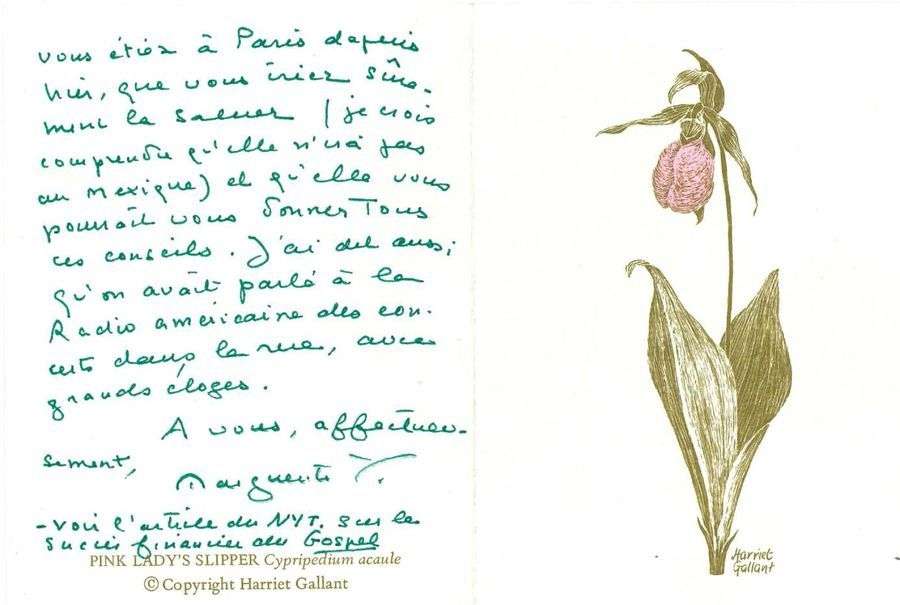 vous étiez à Paris depuis
hier, que vous iriez sûre-
ment la saluer (je crois
comprendre qu'elle n'ira pas
au Mexique) et qu'elle vous
pourrait vous donner Tous
ces conseils. J'ai dit aussi
qu'on avait parlé à la
Radio américaine des con-
certs dans la rue, avec
grands éloges.
A vous, affectueu-
sement,
Marguerite Y.
- voir l'article du NYT. sur le
succès financier du Gospel
PINK LADY'S SLIPPER Cypripedium acaule
© Copyright Harriet Gallant
Harriet
Gallant